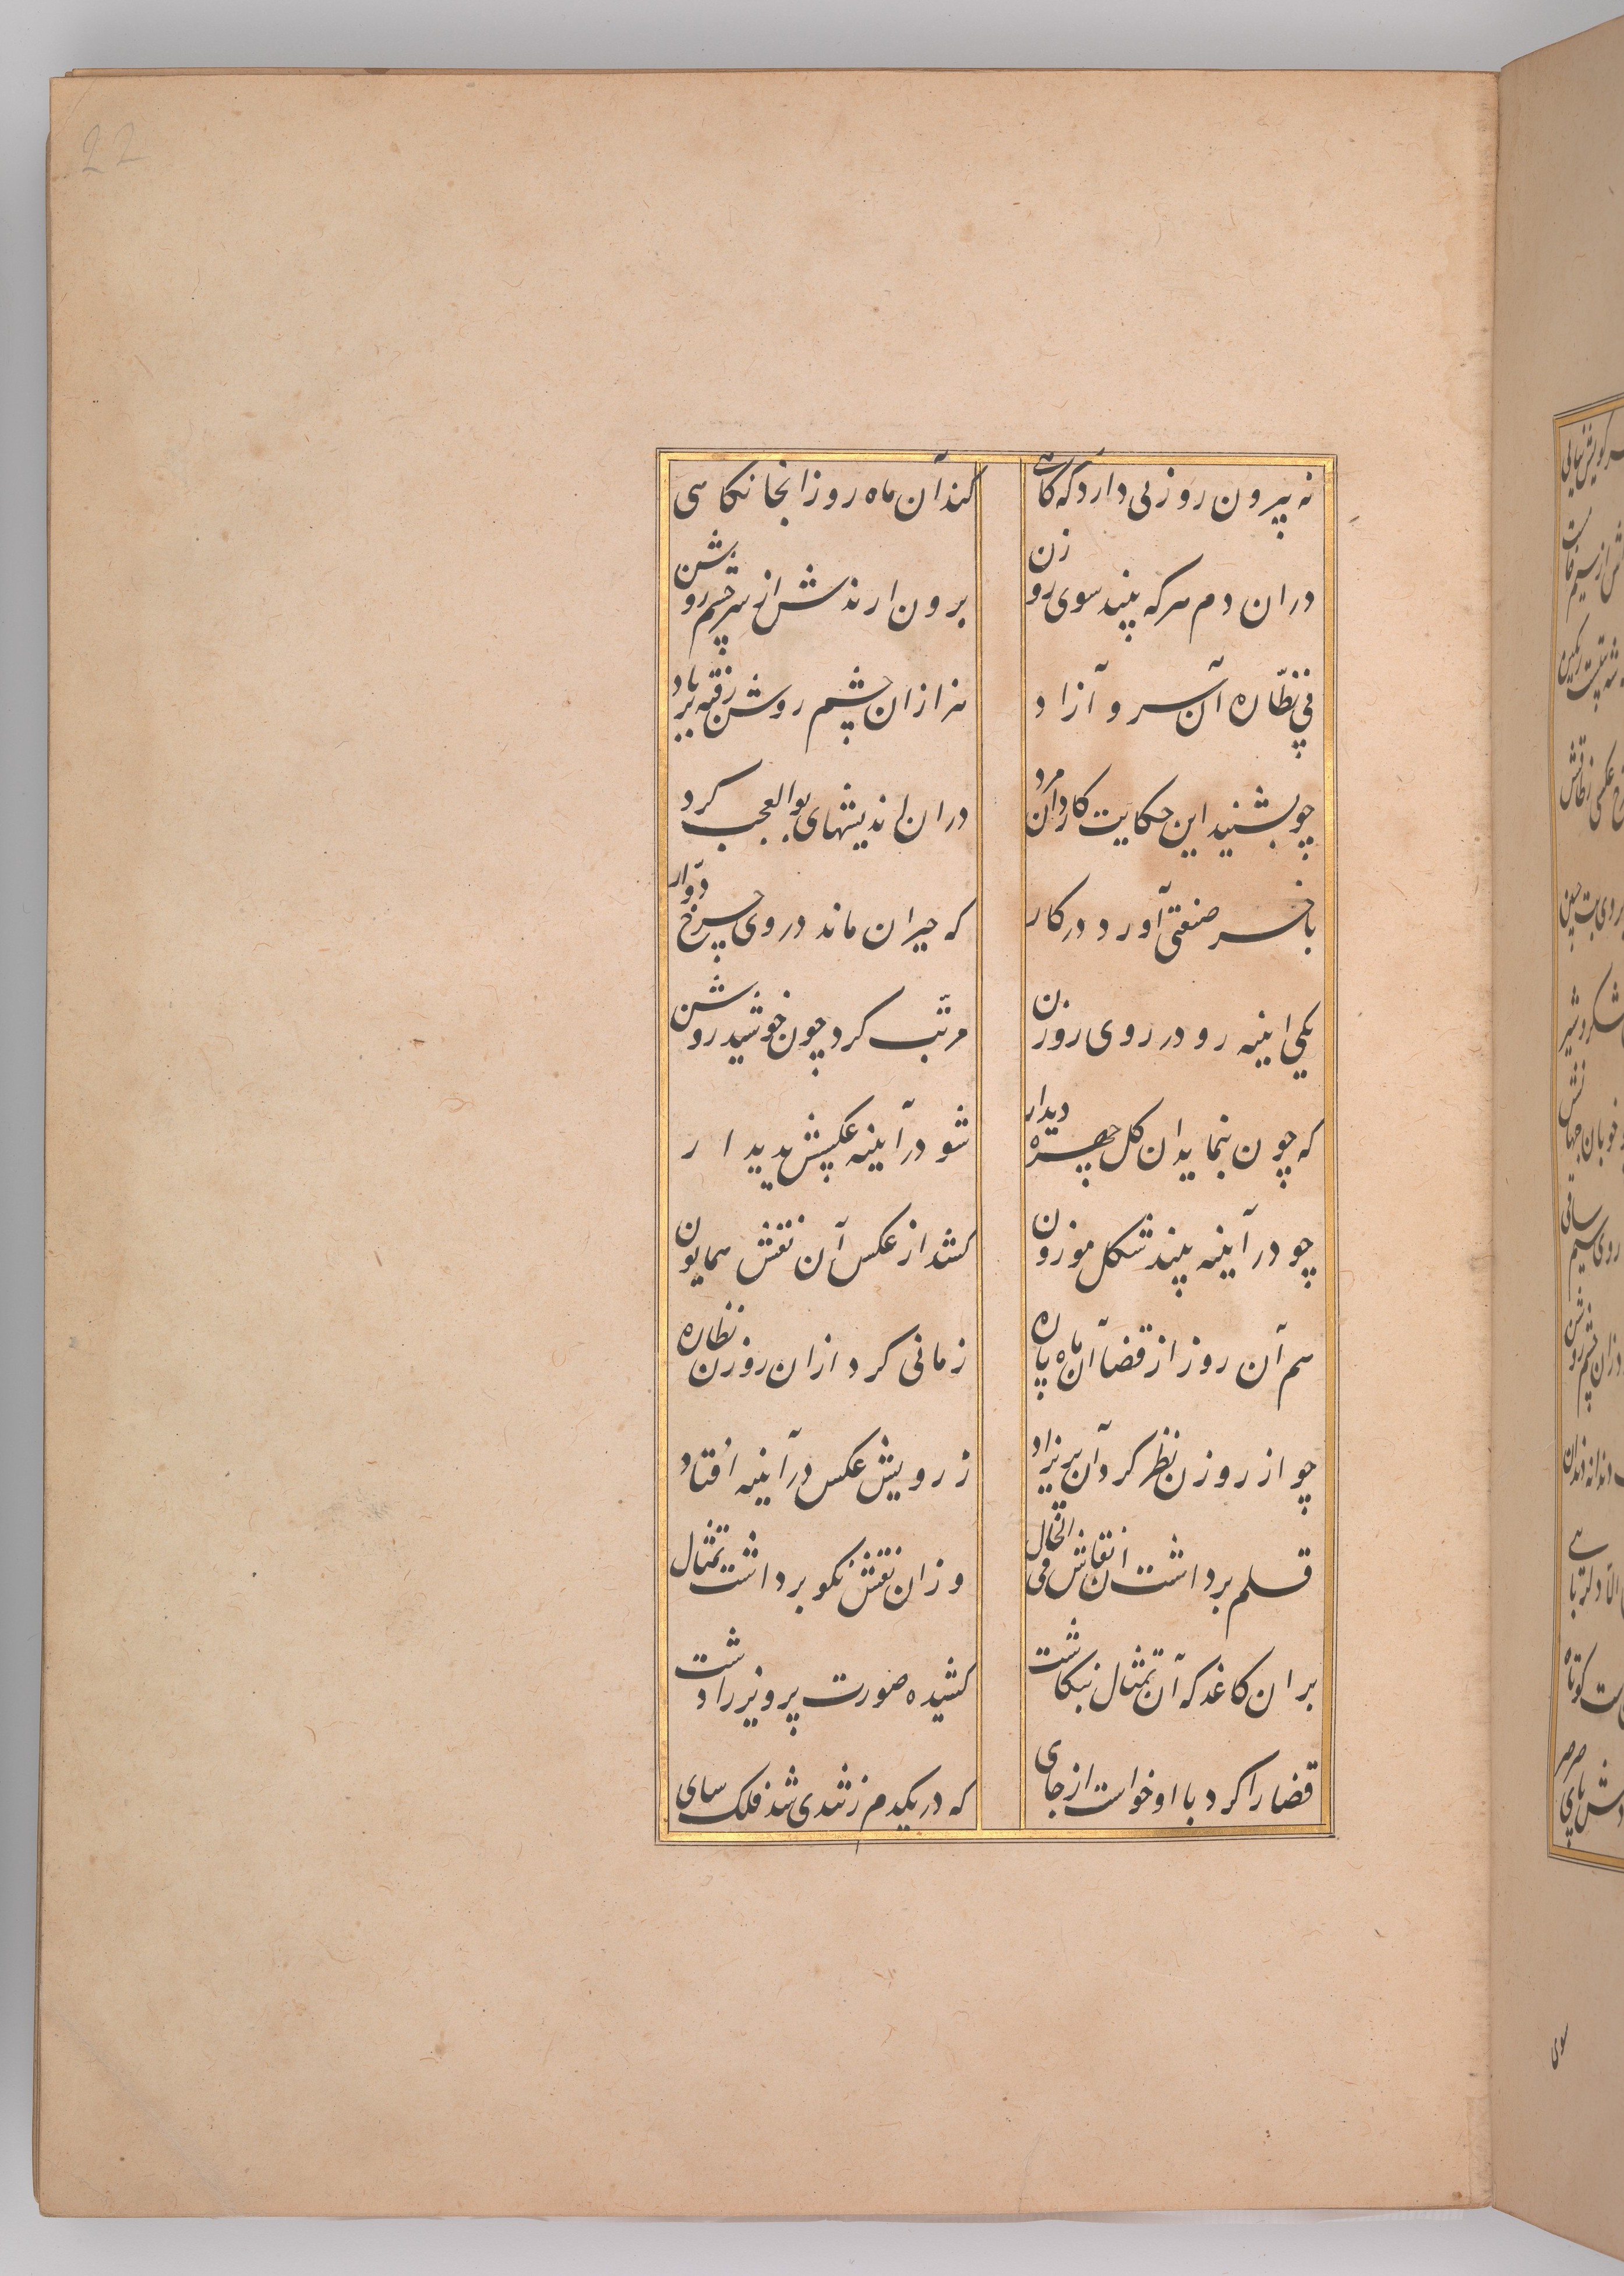 22
نه بیرون روزنی دارد که گاهی کند آن ماه رو زانجا نگاهی
دران دم هرکه بیند سوی روزن برون ارندش از سر چشم روشن
پی نظّاره آن سرو آزاد هزاران چشم روشن رفته بر باد
چو بشنید این حکایت کاردان مرد دران اندیشهای بوالعجب کرد
باخر صنعتی آورد در کار که حیران ماند در وی چرخ دوّار
یکی اینه رو در روی روزن مرتّب کرد چون خورشید روشن
که چون بنماید ان گل چهره دیدار شود در آینه عکسش پدیدار
چو در آینه بیند شکل موزون کشد از عکس آن نقش همایون
هم آن روز از قضا آن ماه پاره زمانی کرد ازان روزن نظاره
چو از روزن نظر کرد آن پریزاد ز رویش عکس در آینه اُفتاد
قلم برداشت ان نقاش فی الحال وزان نقش نکو برداشت تمثال
بران کاغد که آن تمثال بنگاشت کشیده صورت پرویز را داشت
قضا را گرد باد او خواست از جای که در یکدم ز تندی شد فلک سای
سوی